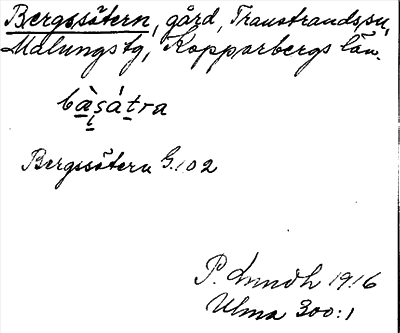 Bergssätern, gård, Transtrands sn,
Malungs tg, Kopparbergs län.
bàsátra
Bergssätern G.102
P. Lundh 1916
Ulma 300:1